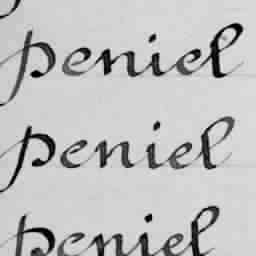 peniel
peniel
peniel